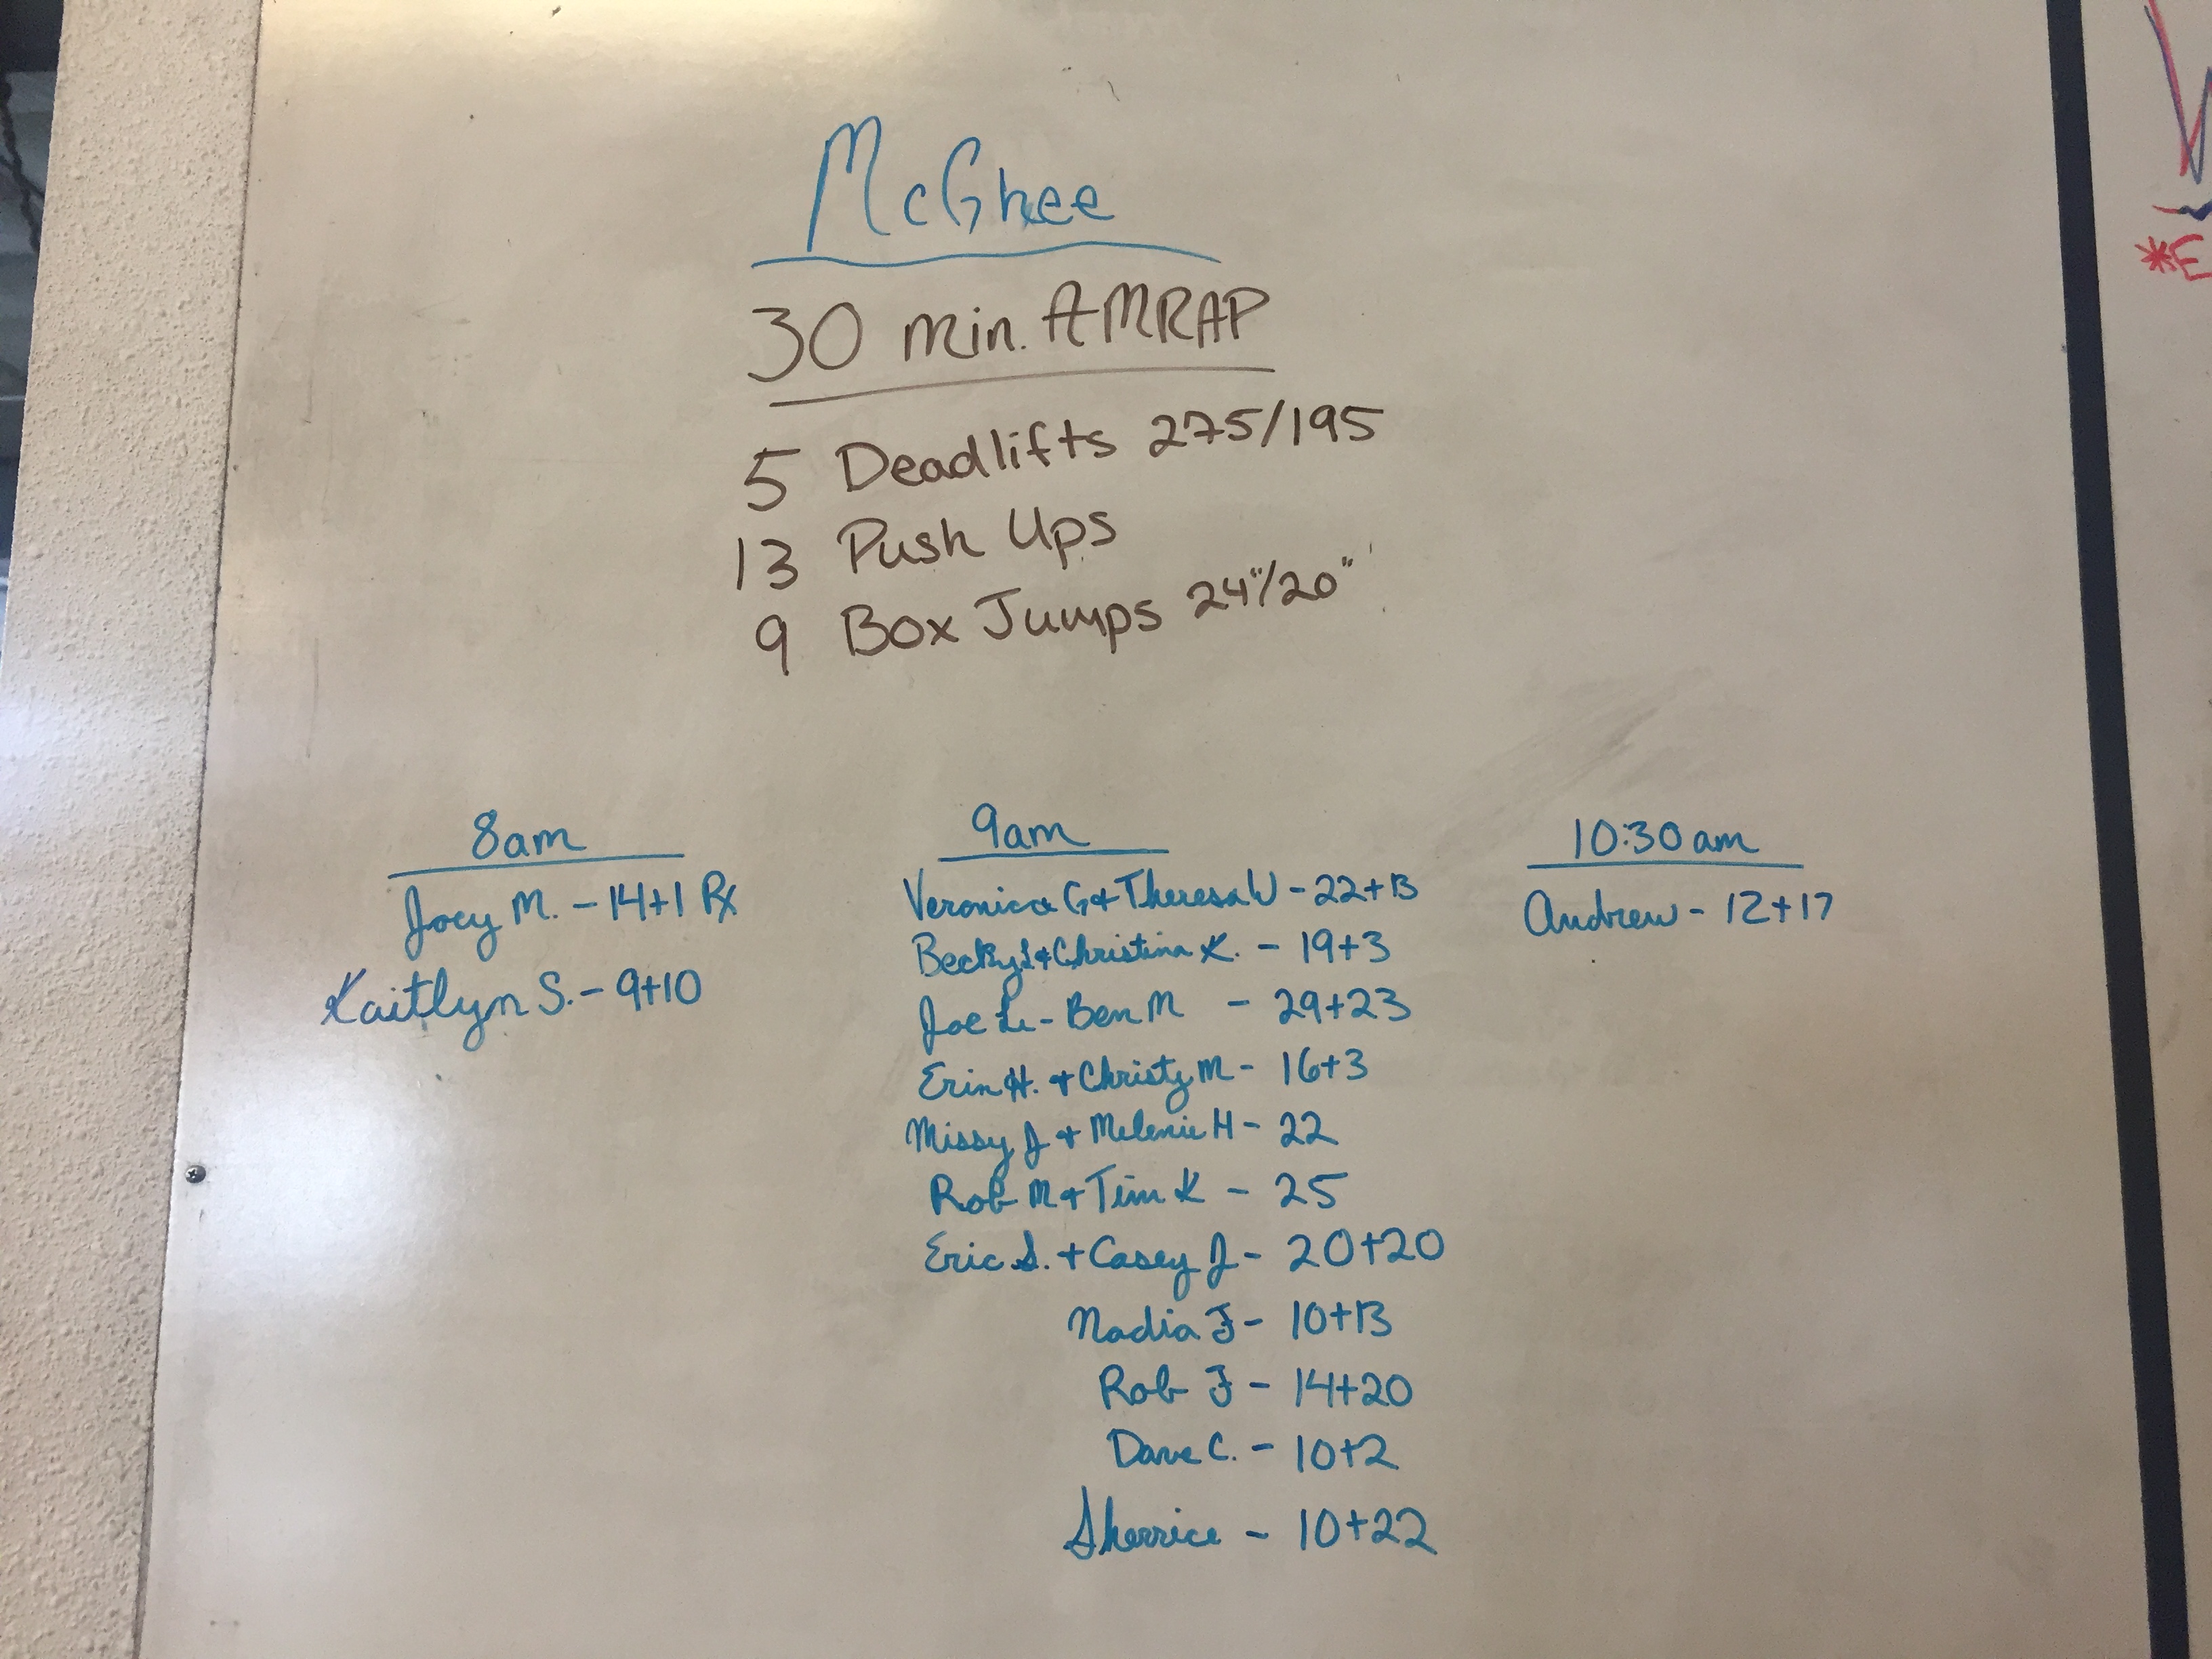 McGhee
30 min. AMRAP
5 Deadlifts 275/195
13 Push Ups
9 Box Jumps 24"/20"
8am
Joey M. - 14+1 Rx
Kaitlyn S. - 9+10
9am
Veronica G + Theresa W - 22+13
Becky L + Christina K. - 19+3
Joe L. - Ben M - 29+23
Erin H. + Christy M - 16+3
Missy J + Melenie H - 22
Rob M + Tim K - 25
Eric S. + Casey J - 20+20
Nadia F - 10+13
Rob F - 14+20
Dave C. - 10+2
Sherrice - 10+22
10:30am
Andrew - 12+17
*E